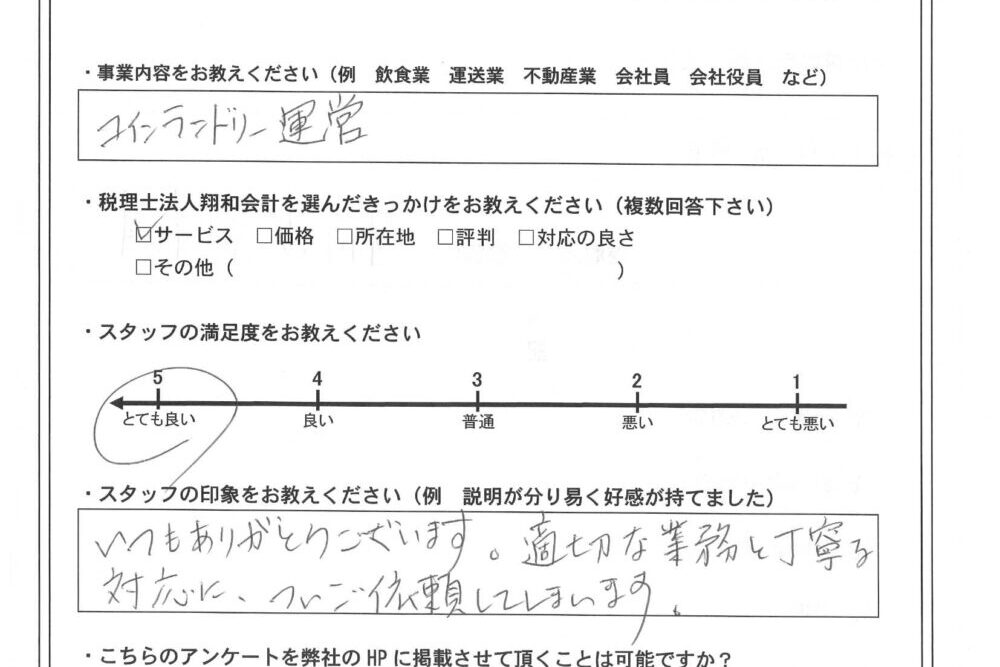 ・事業内容をお教えください（例　飲食業　運送業　不動産業　会社員　会社役員　など）
コインランドリー運営
・税理士法人翔和会計を選んだきっかけをお教えください（複数回答下さい）
☑サービス　□価格　□所在地　□評判　□対応の良さ
□その他（　　　　　　　　　　　　　　　　　　　）
・スタッフの満足度をお教えください
5　4　3　2　1
とても良い　良い　普通　悪い　とても悪い
・スタッフの印象をお教えください（例　説明が分り易く好感が持てました）
いつもありがとうございます。適切な業務と丁寧な
対応に、ついご依頼してしまいます。
・こちらのアンケートを弊社の HP に掲載させて頂くことは可能ですか？